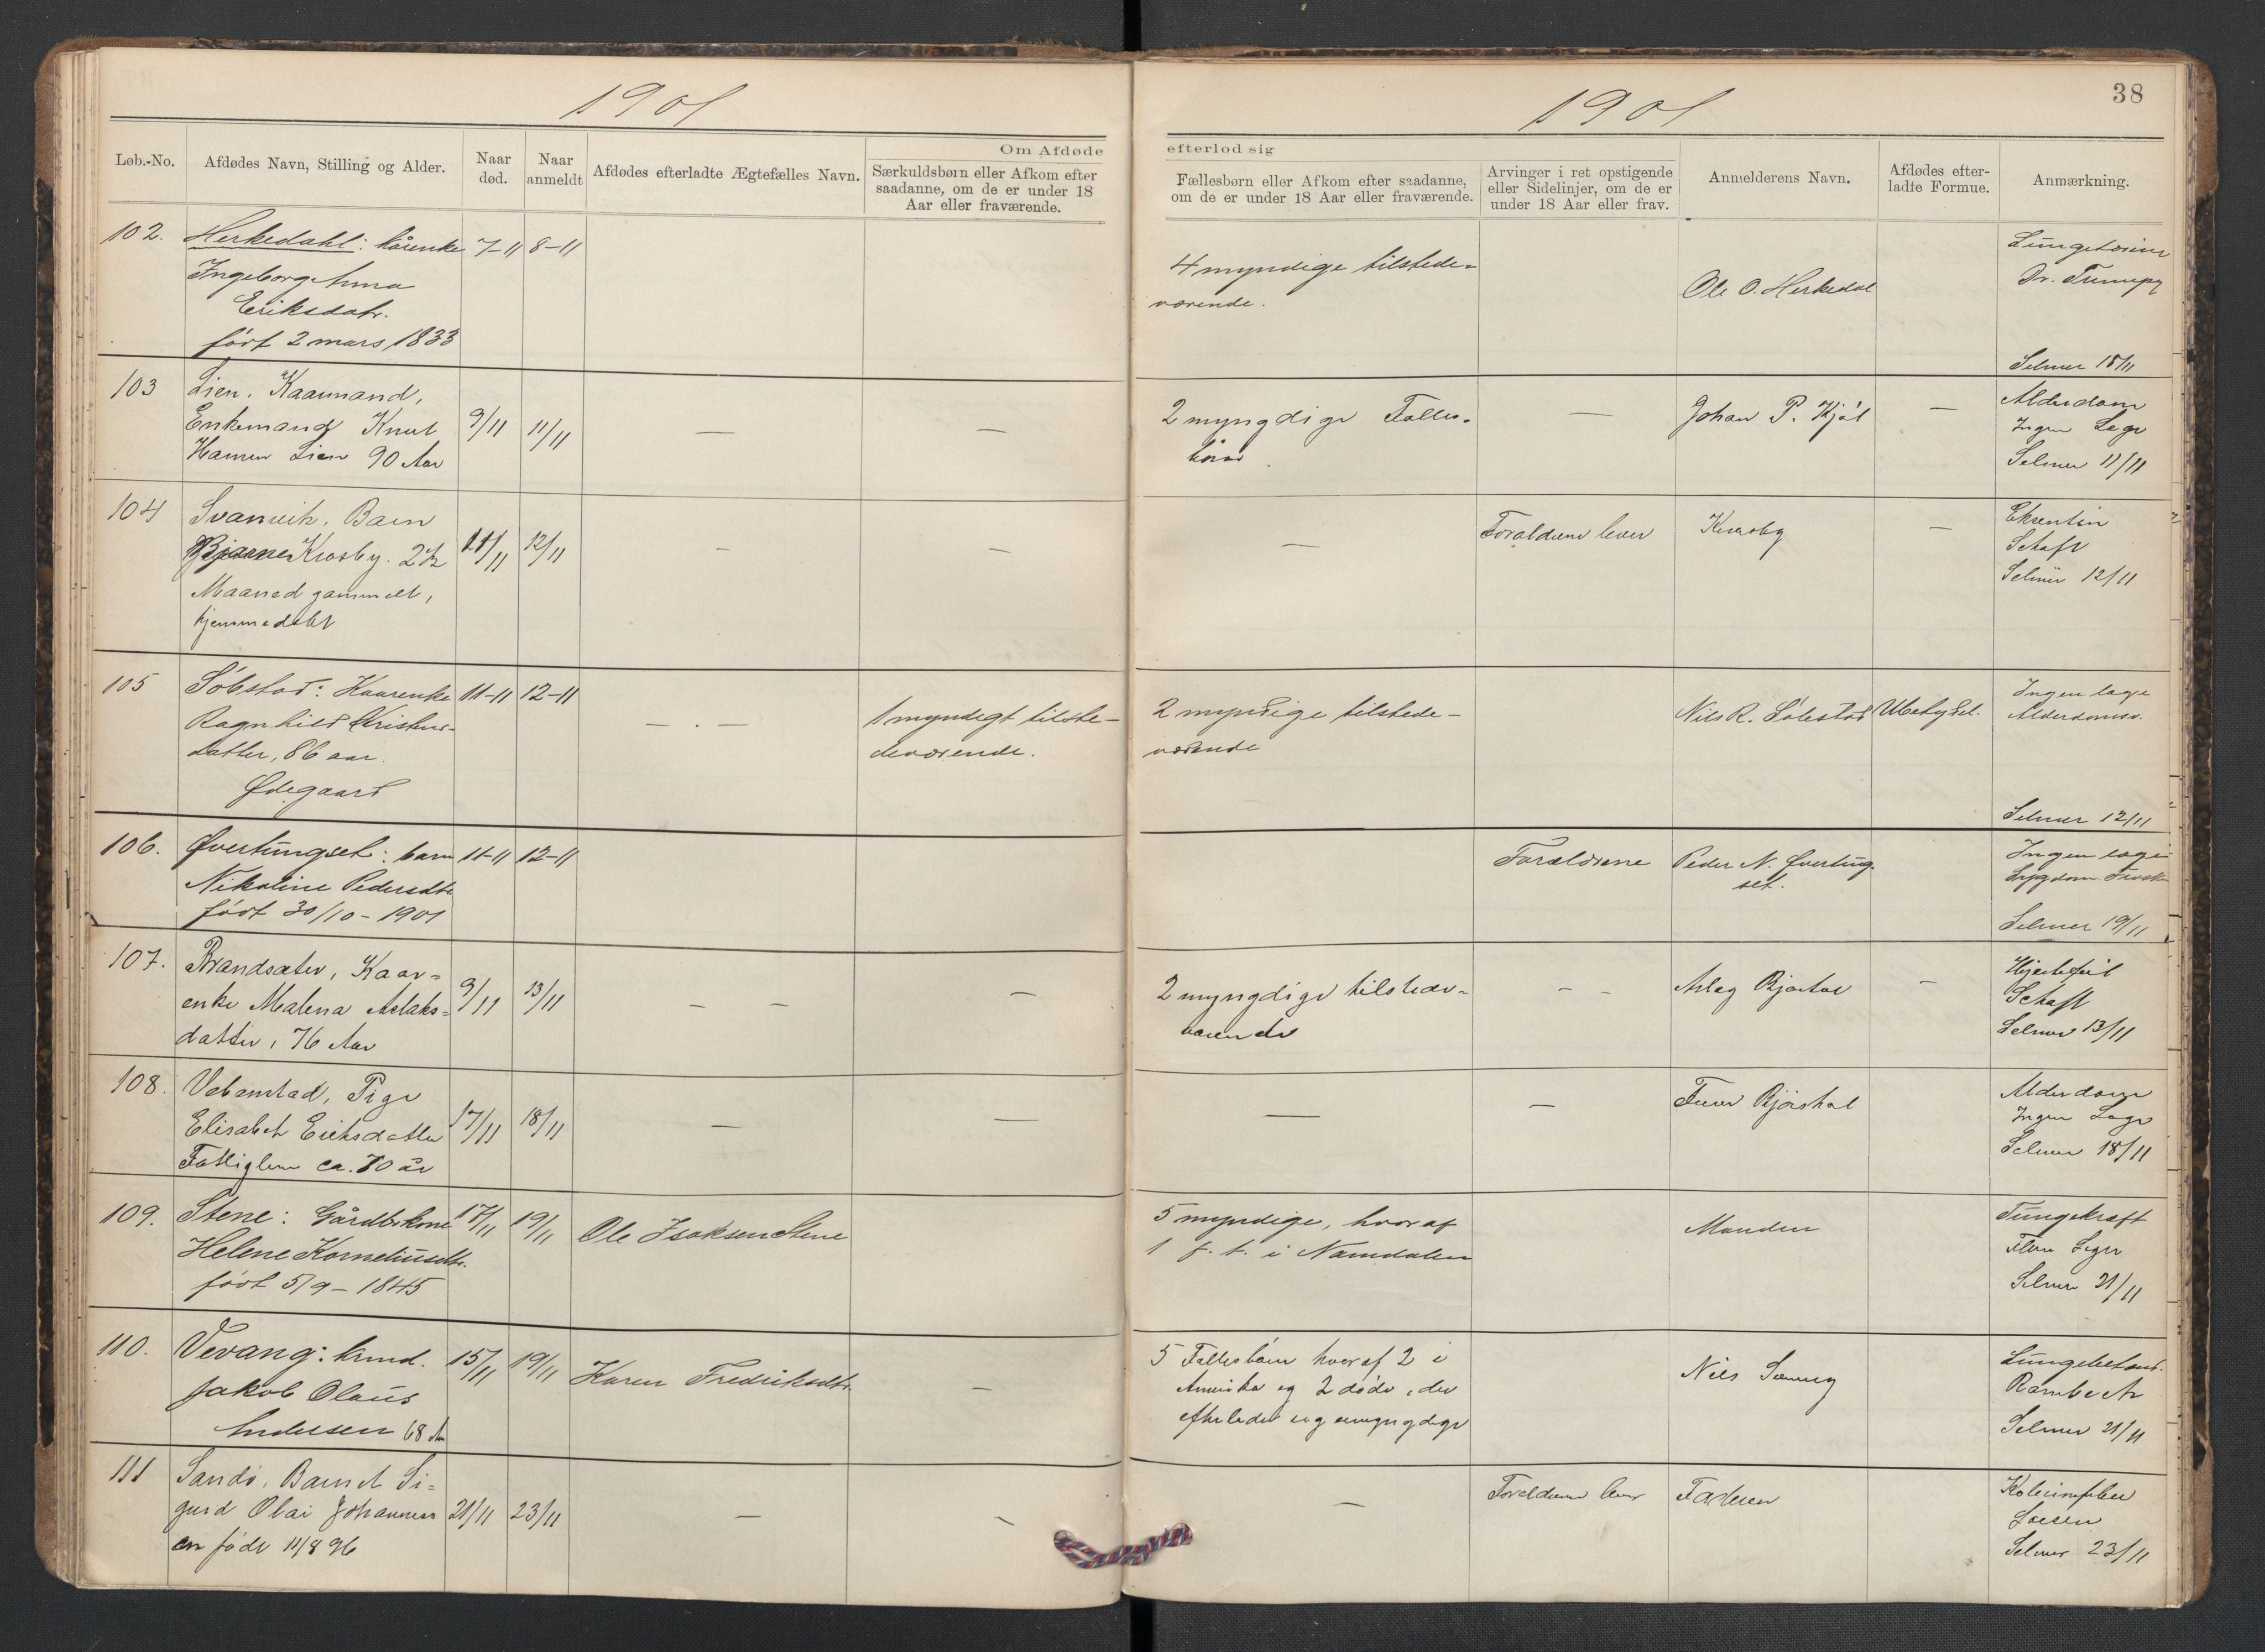 1901
1901
38
Om Afdøde
efterlod sig
Løb.-No.
Afdødes Navn, Stilling og Alder.
Naar død.
Naar anmeldt
Afdødes efterladte Ægtefælles Navn.
Særkuldsbørn eller Afkom efter
saadanne, om de er under 18
Aar eller fraværende.
Fællesbørn eller Afkom efter saadanne,
om de er under 18 Aar eller fraværende.
Arvinger i ret opstigende
eller Sidelinjer, om de er
under 18 Aar eller frav.
Anmelderens Navn.
Afdødes efter-
ladte Formue.
Anmærkning.
102. Herkedahl: kårenke 7-11 8-11
Ingeborg Anna
Eriksdatr.
født 2 mars 1833
4 myndige tilstede-
værende.
Ole O. Herkedal
Dr.
Selmer 18/11
103 Lien, Kaarmand,
Enkemand Knut
Lien 90 Aar
9/11 11/11
—
—
2 myngdige Fælles-
børn
—
Johan P. Kjøl
—
Alderdom
Ingen Læge
Selmer 11/11
104 Svanvik, Barn
Bjarne Krosby. 2½
Maaned gammelt,
hjemmedøbt
11/11 12/11
—
—
—
Forældrene lever
—
Schaft
Selmer 12/11
105 Søbstad: Kaarenke 11-11 12-11
Ragnhild Kristens-
datter, 86 aar.
Ødegaard
— . —
1 myndigt tilste-
deværende.
2 myndige tilstede-
værende
Nils R. Søbstad
Ubetydel.
Ingen læge
Alderdomsv.
Selmer 12/11
106. Øvertungset: barn 11-11 12-11
Nikoline Pedersdtr
født 30/10-1901
Forældrene
Peder N. Øvertung-
set.
Ingen læge
Sygdom.
Selmer 19/11
107. Brandsæter, Kaar-
enke Malena Aslaks-
datter, 76 Aar
9/11 13/11
— —
—
2 myngdige tilstede-
værende
— —
Aslag
—
Hjertefeil
Schaft
Selmer 13/11
108. Vebenstad, Pige
Elisabet Eriksdatter
Fattiglem ca. 70 år
17/11 18/11
—
—
—
—
Alderdom
Ingen Læge
Selmer 18/11
109. Stene: Gårdbrkone 17/11 19/11
Helene Korneliusdtr.
født 5/9-1845
Ole Isaksen Stene
5 myndige, hvoraf
1 f. t. i Namdalen
Manden
Selmer 21/11
110. Vevang: kmd. 15/11 19/11
Jakob Olaus
Andersen 68 A
Karen Fredriksdtr.
—
5 Fællesbørn hvoraf 2 i
Amerika og 2 døde, der
efterlader sig umyngdige
Nils
Selmer 21/11
111 Sandø, Barnet Si-
gurd Olai Johannes-
en født 11/8 96
21/11 23/11
—
—
—
Forældrene lever
Faderen
Selmer 23/11